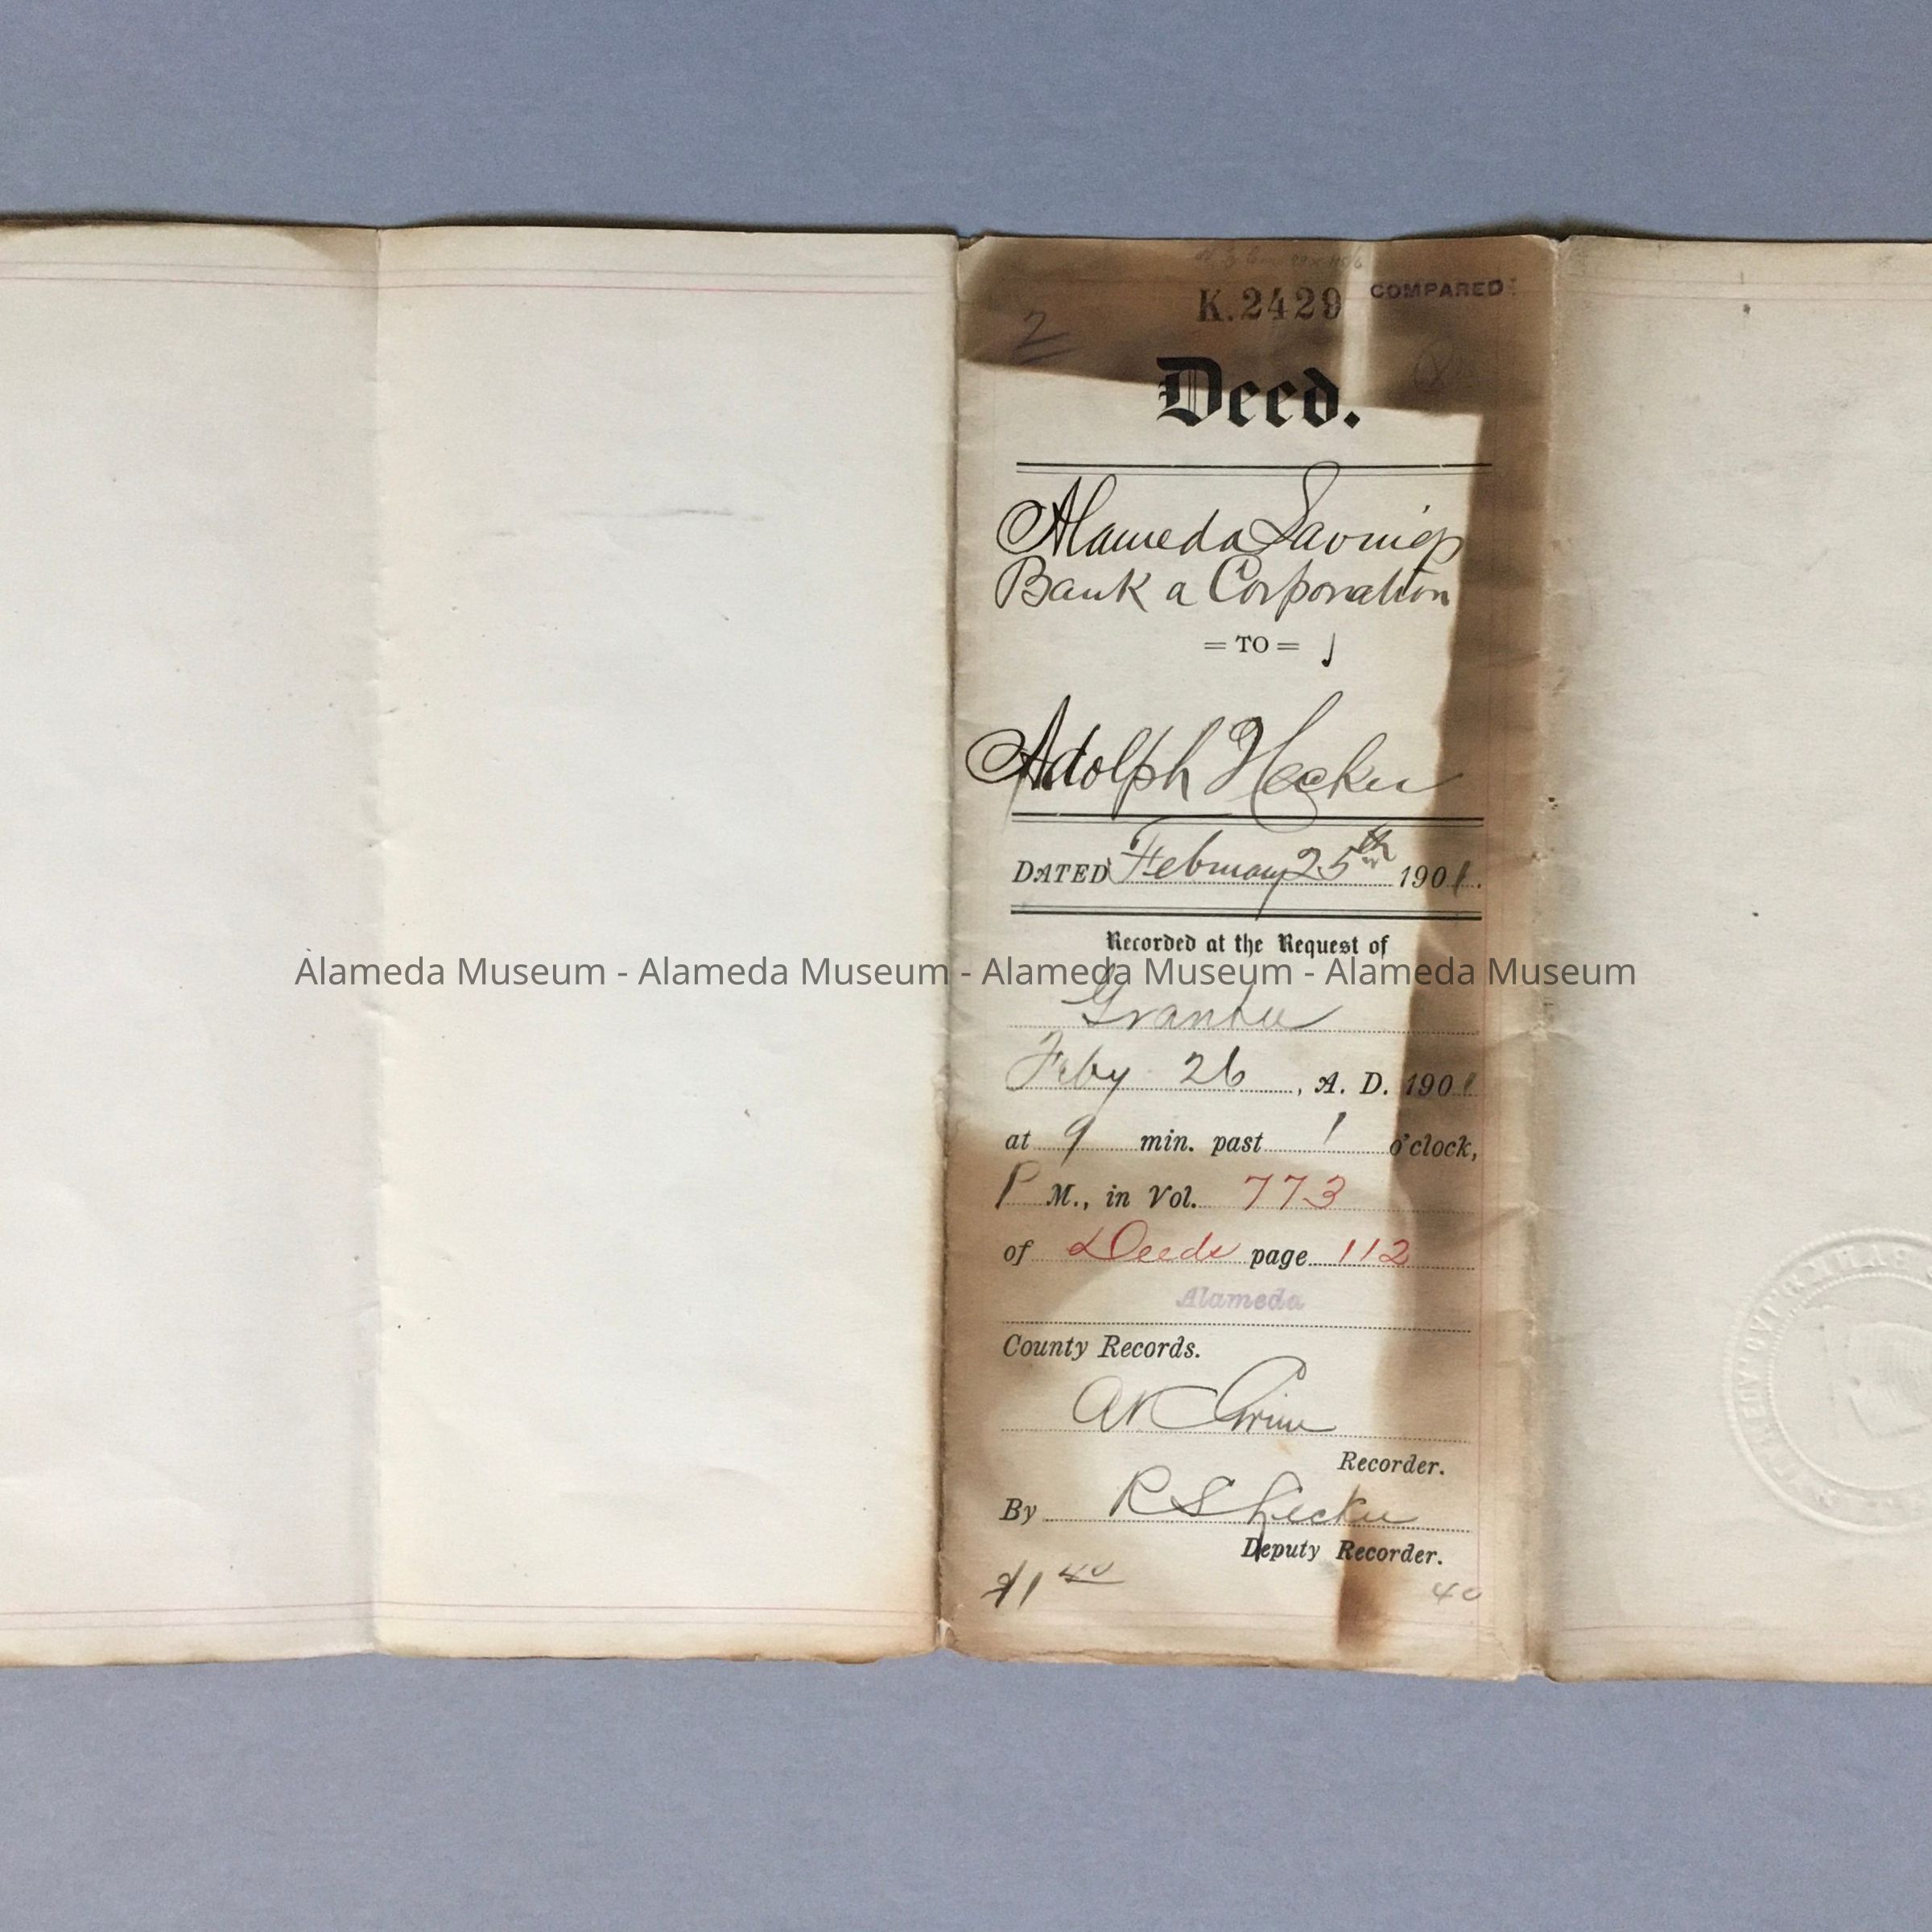 K.2429 COMPARED
2
Deed.
Alameda Savings
Bank a Corporation
= TO =
Adolph Hecker
DATED February 25th 1901.
Recorded at the Request of
Alameda Museum - Alameda Museum - Alameda Museum - Alameda Museum
Grantee
Feby 26, A. D. 1901
at 9 min. past 1 o'clock,
P M., in Vol. 773
of Deeds page 112
Alameda
County Records.
Recorder.
By R S
Deputy Recorder.
$1 40 40